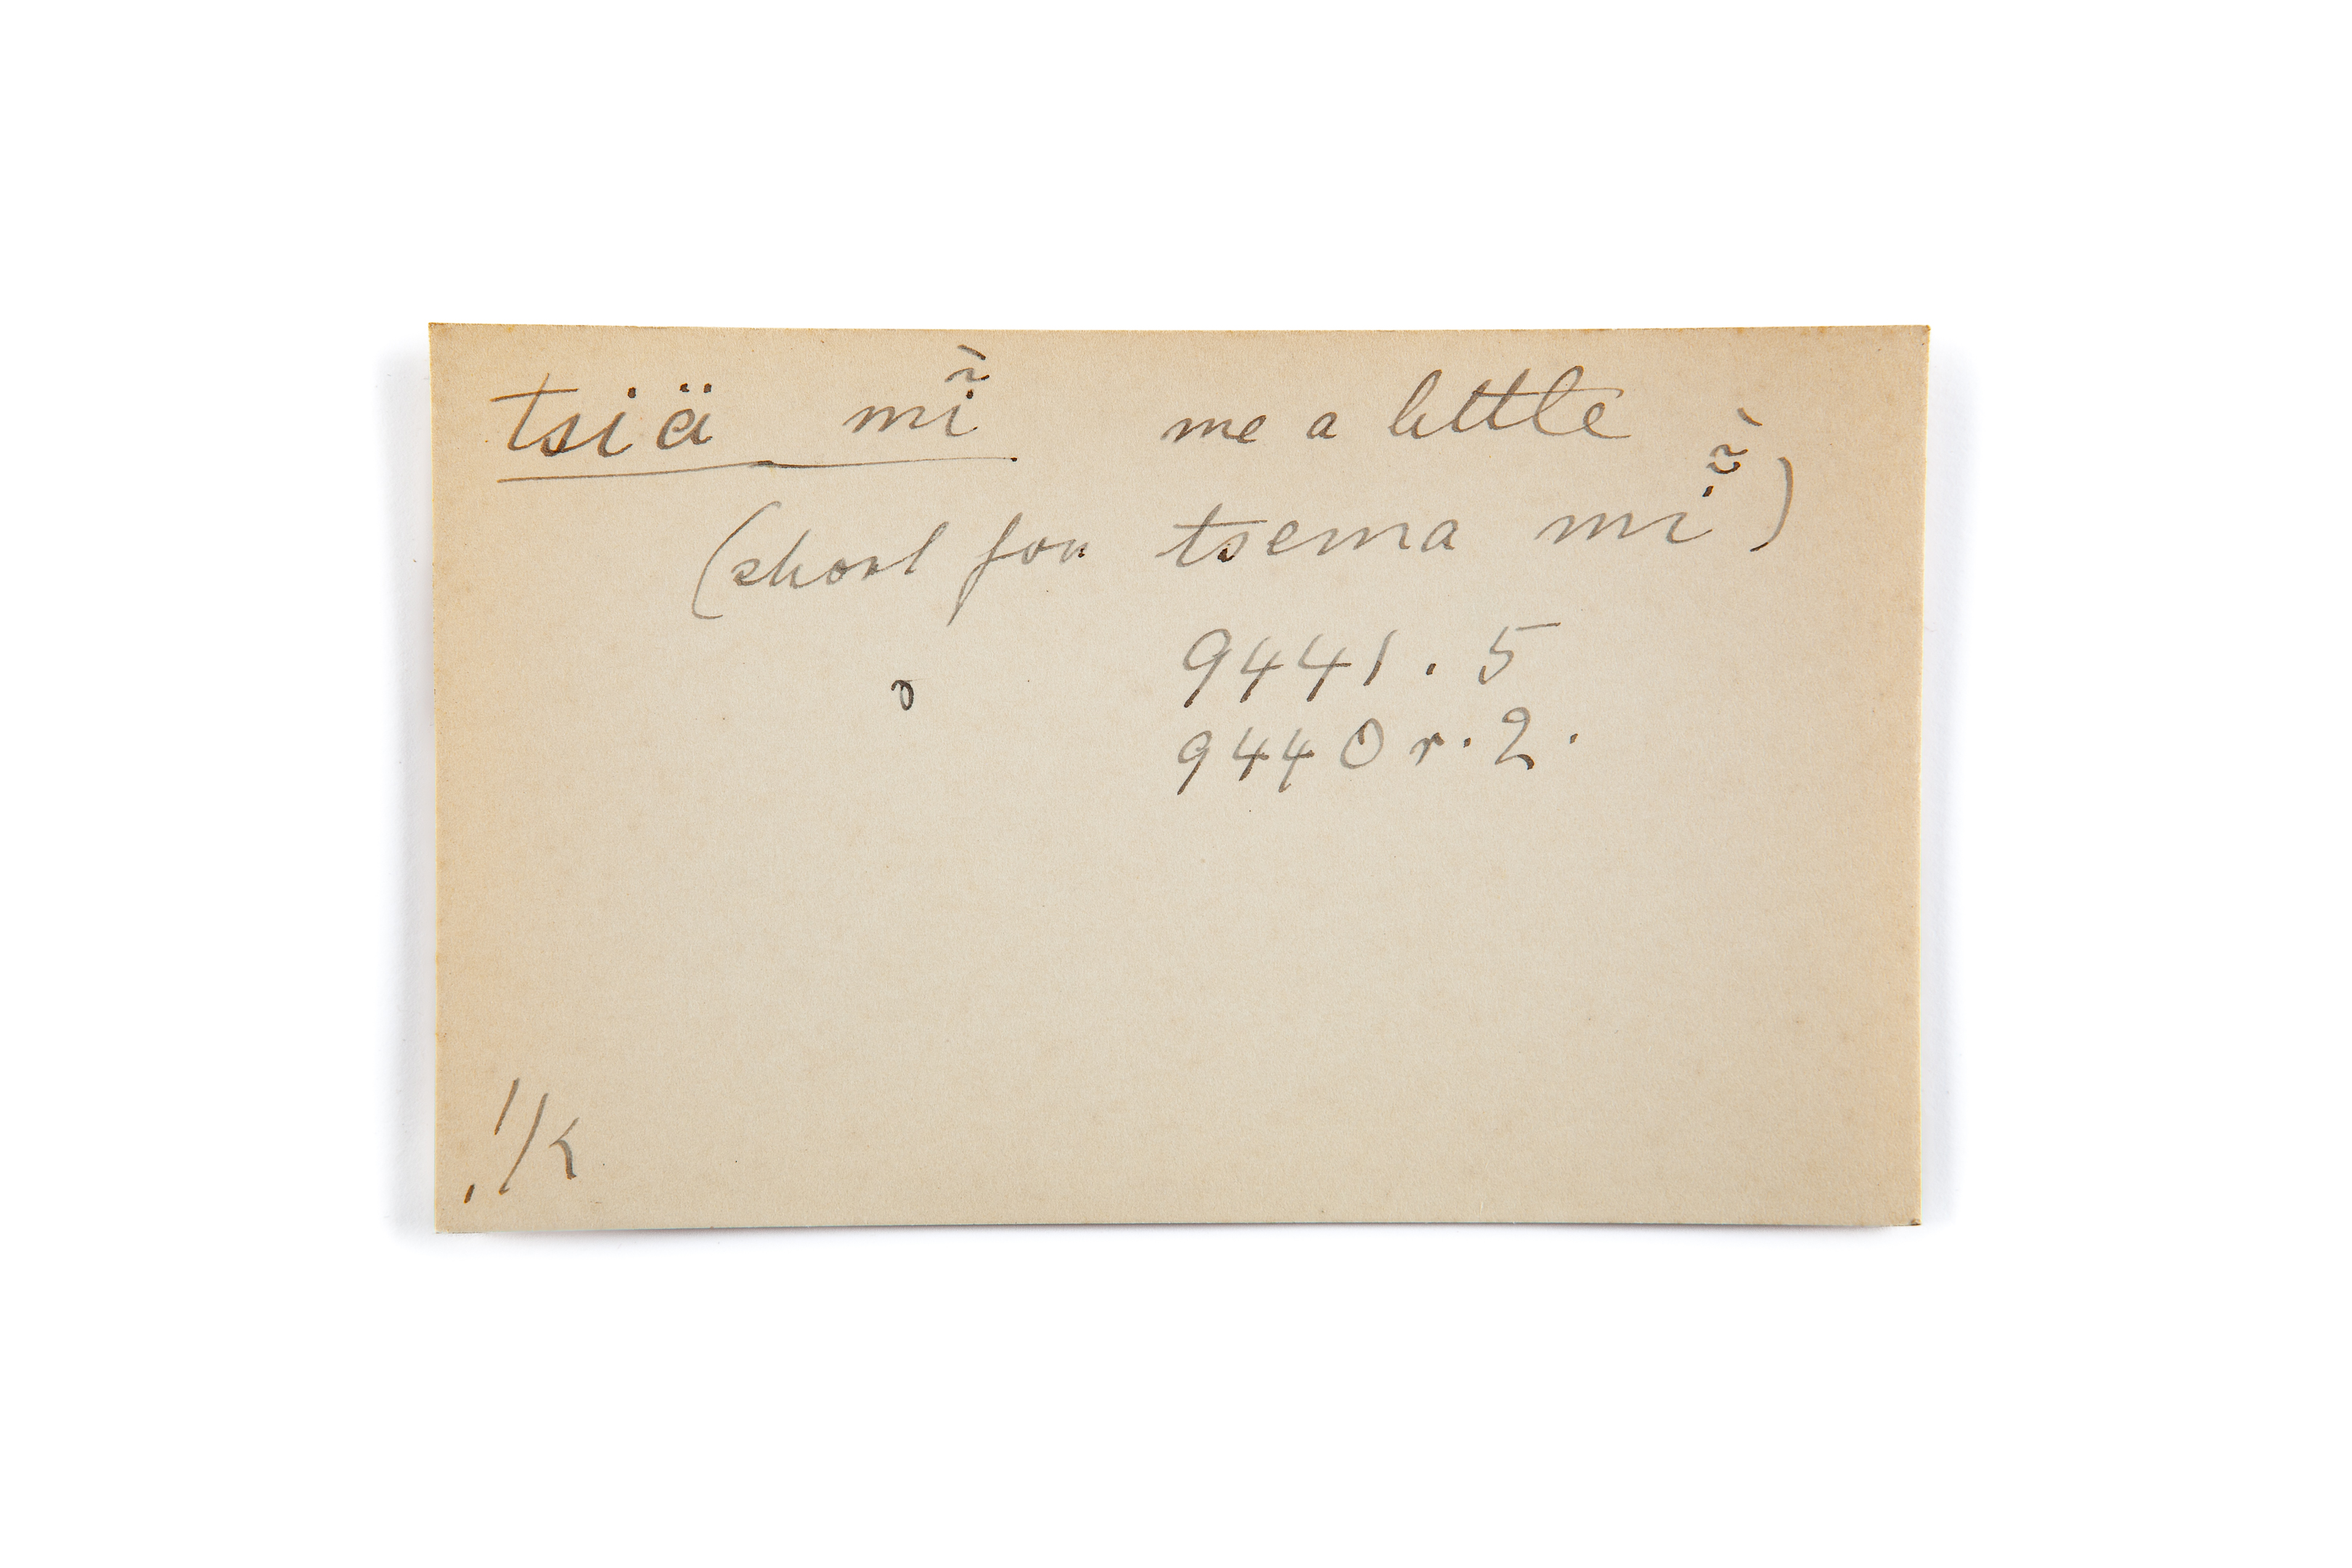 tsiä mĩ̀ me a little
(short for tsema mĩ̀)
9441. 5
9440 r. 2.
!/K